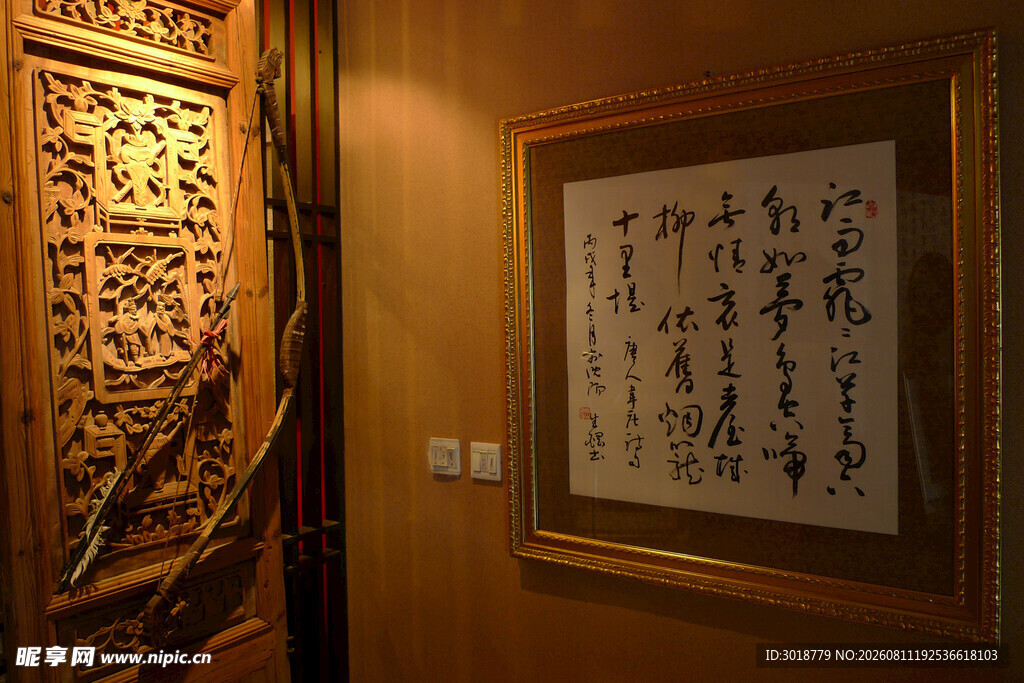 江雨霏〻江草齊六
朝如夢鳥空啼
無情最是臺城
柳依舊烟籠
十里堤 唐人韋庄詩
丙戌年冬月
昵享网 www.nipic.cn
ID:3018779 NO:20260811192536618103